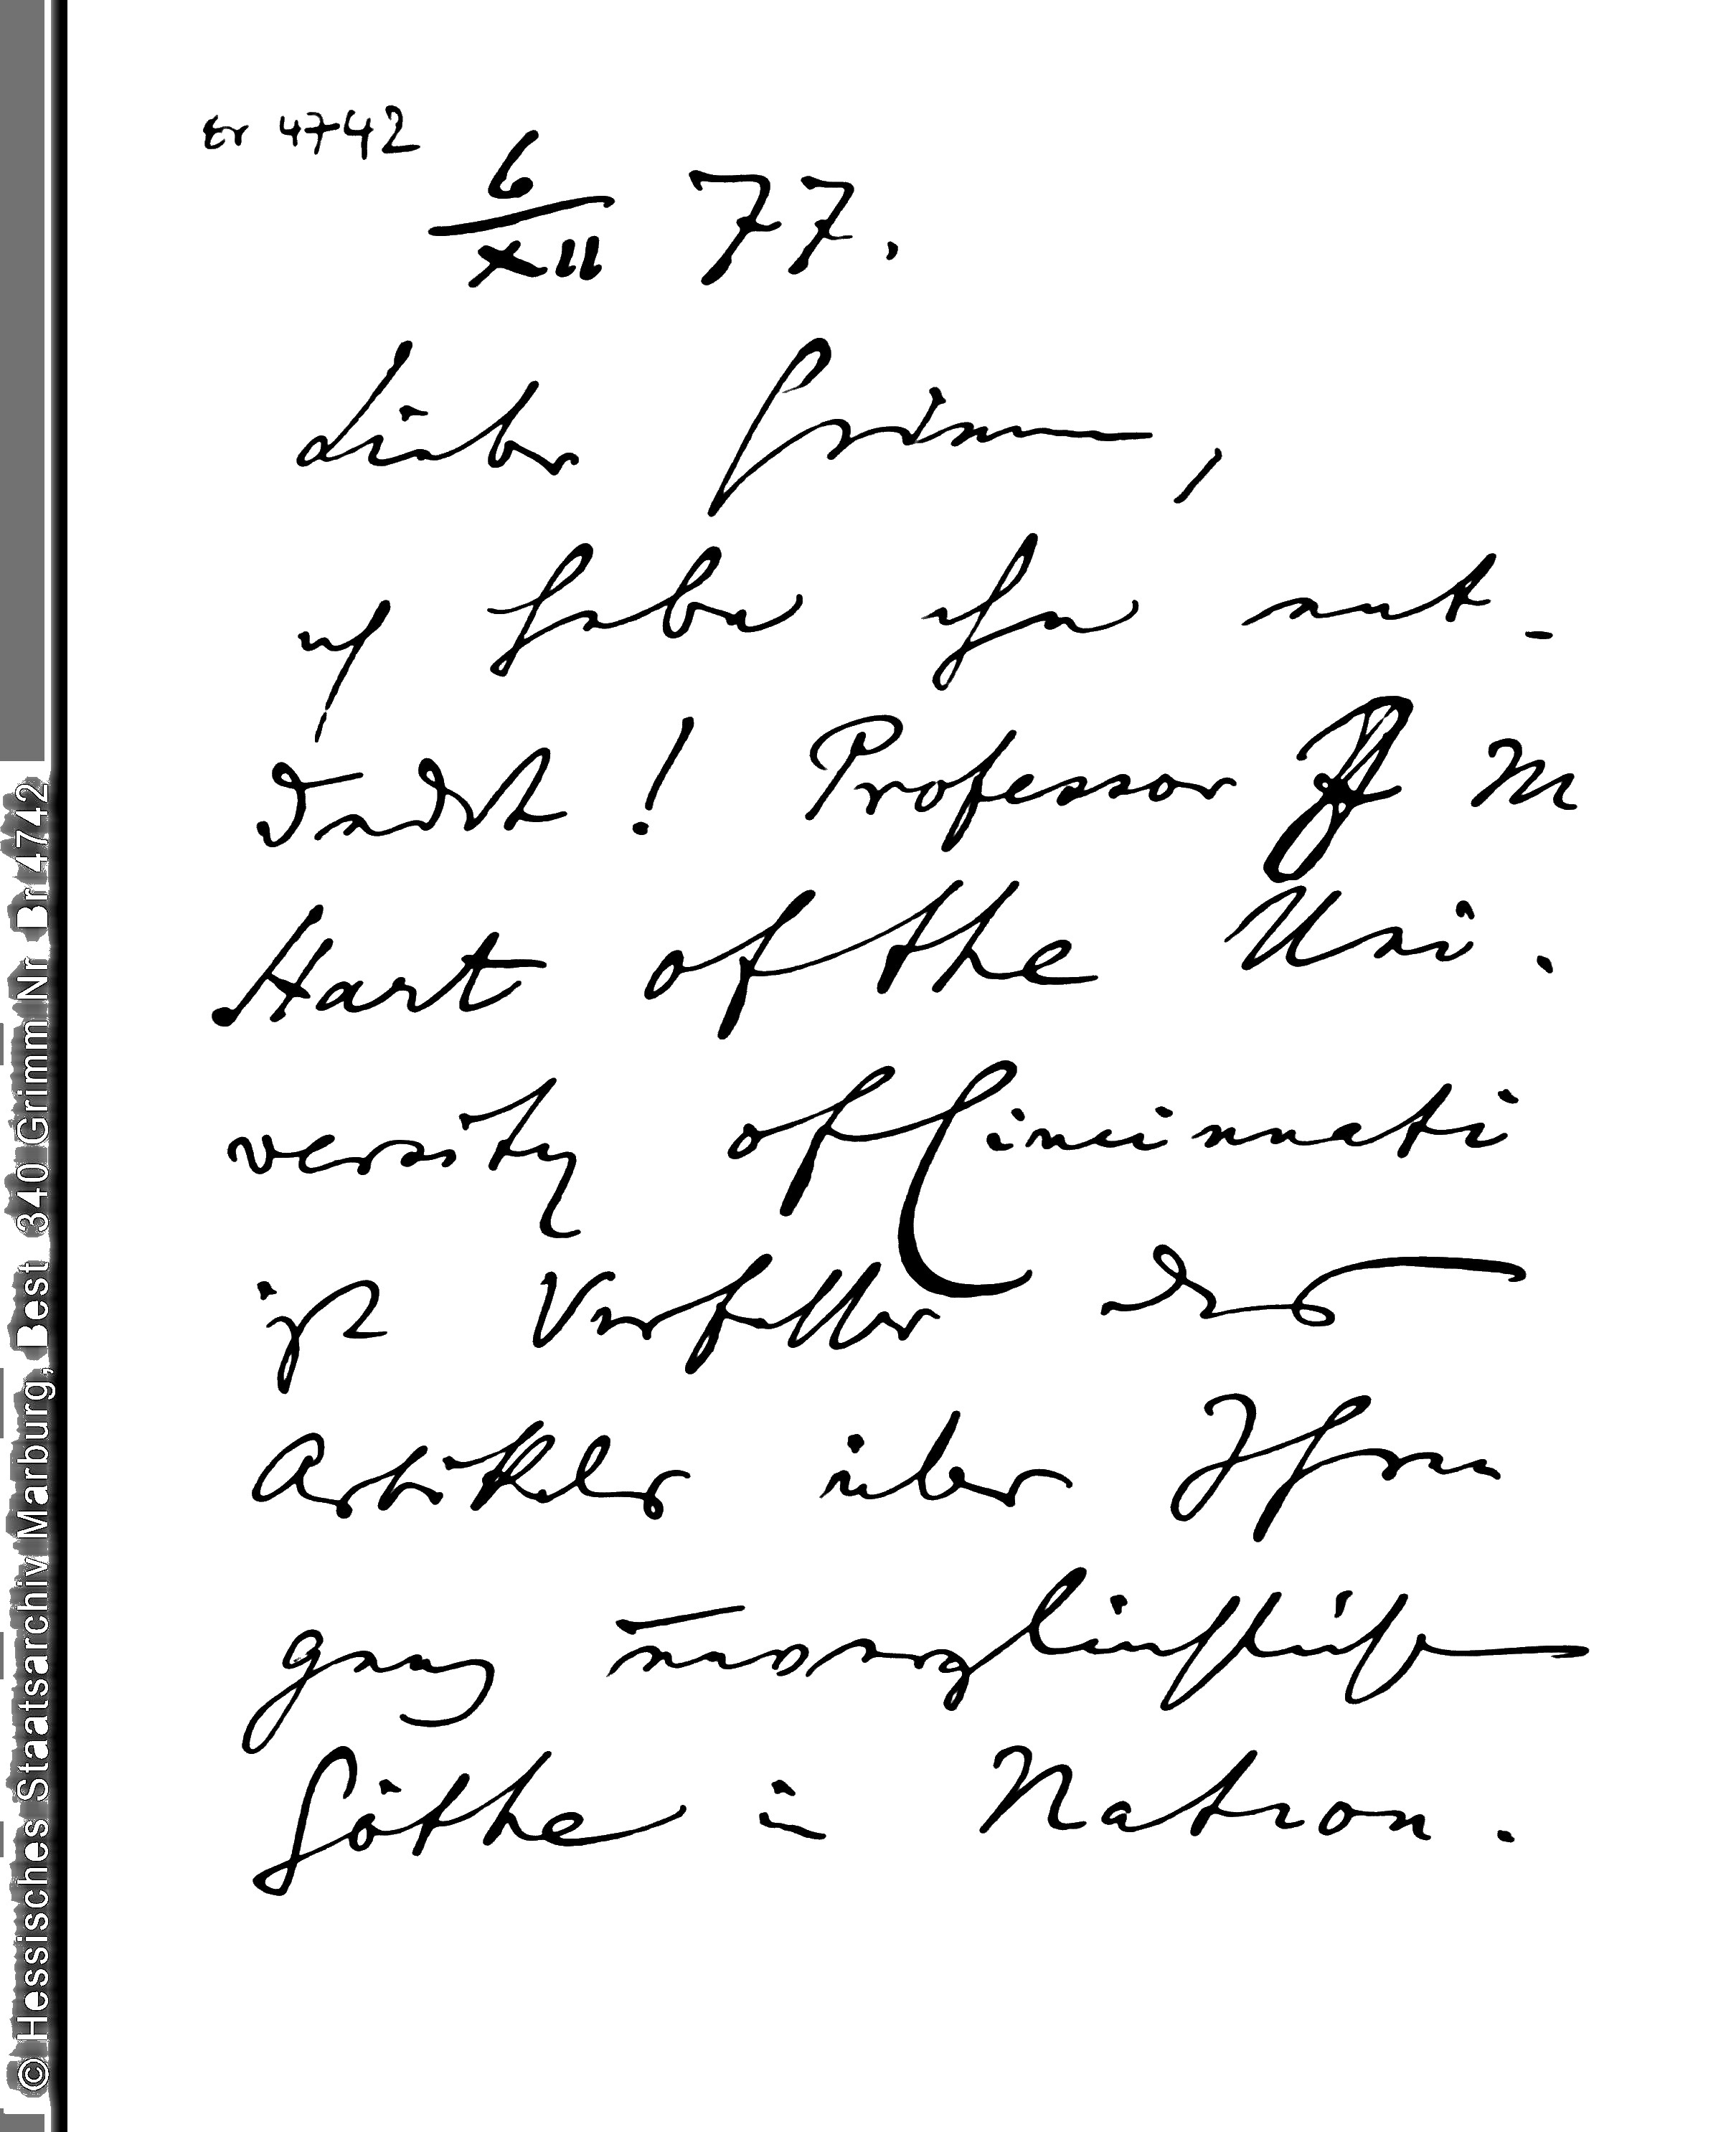 Br 4742
6/XII 77.
Lieber Grimm,
ich habe ihn ent-
deckt! Professor J M
Hart of the Uni-
versity of Cincinnati
ist Verfasser des
Artikels über Ihren
ganz unvergleichlichen
Göthe in Nation.
© Hessisches Staatsarchiv Marburg, Best. 340 Grimm Nr. Br 4742